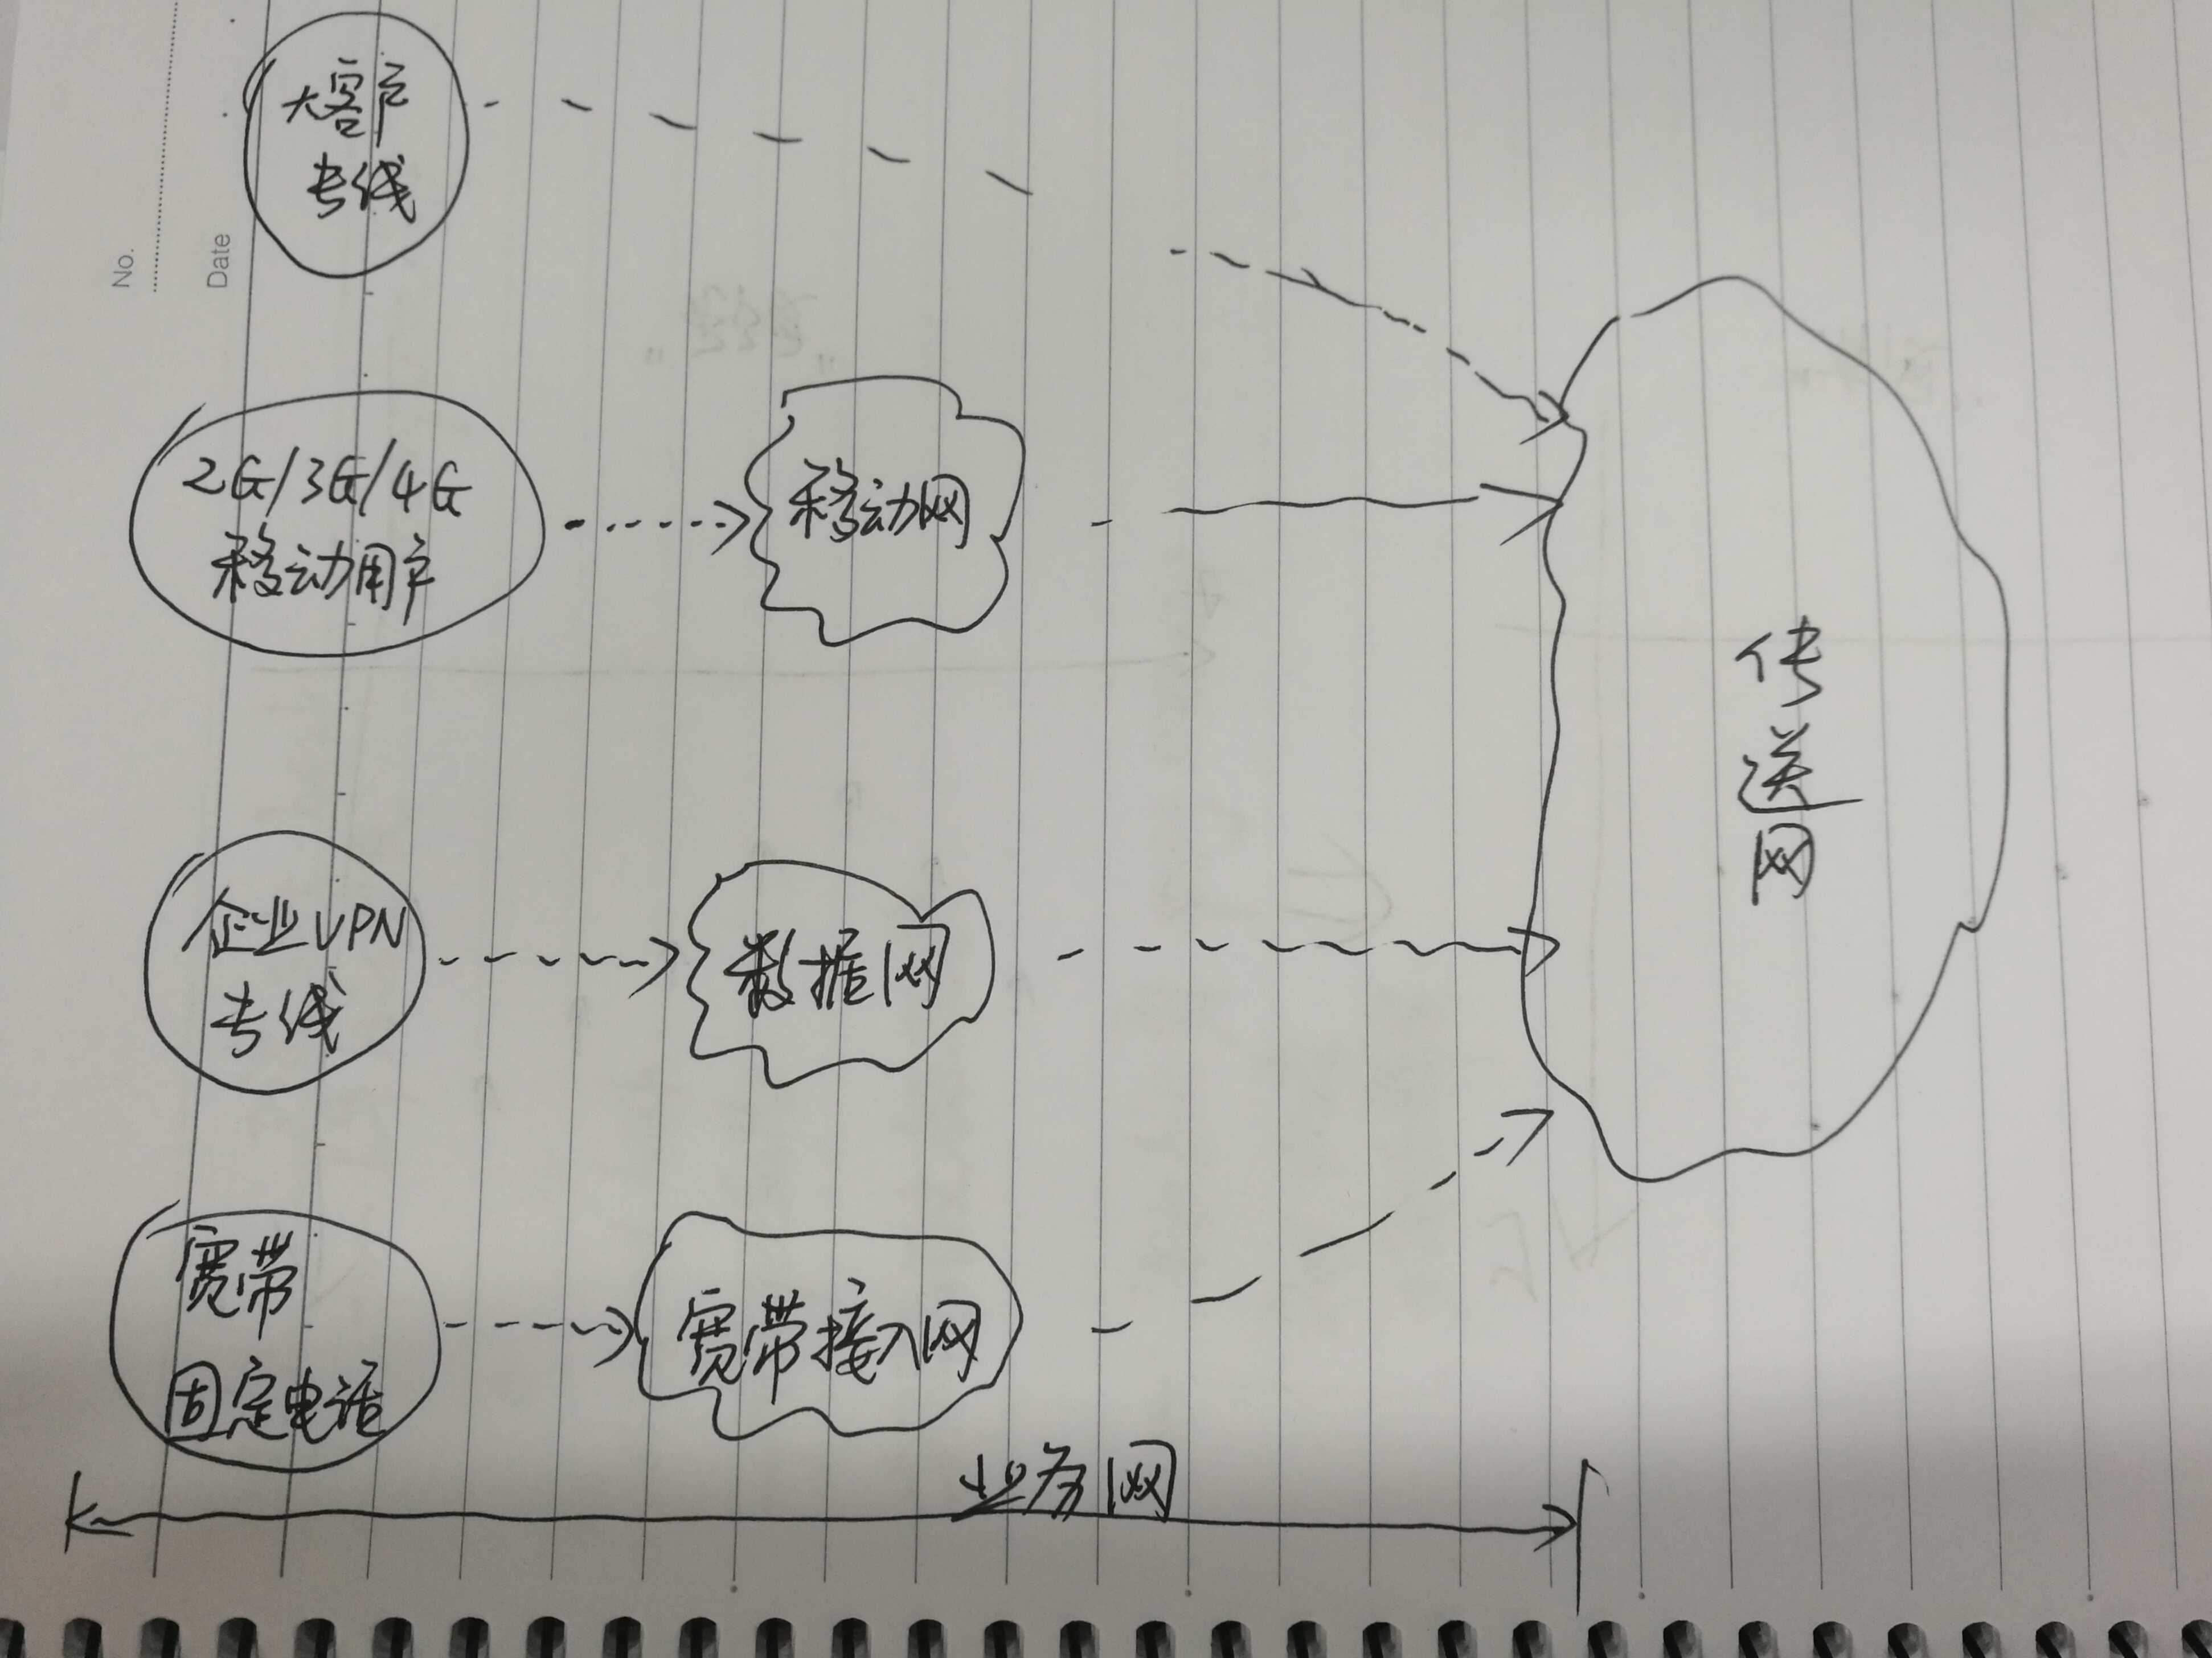 No.
Date
大客户
专线
2G/3G/4G
移动用户
移动网
传
送
网
企业VPN
专线
数据网
宽带
固定电话
宽带接入网
业务网